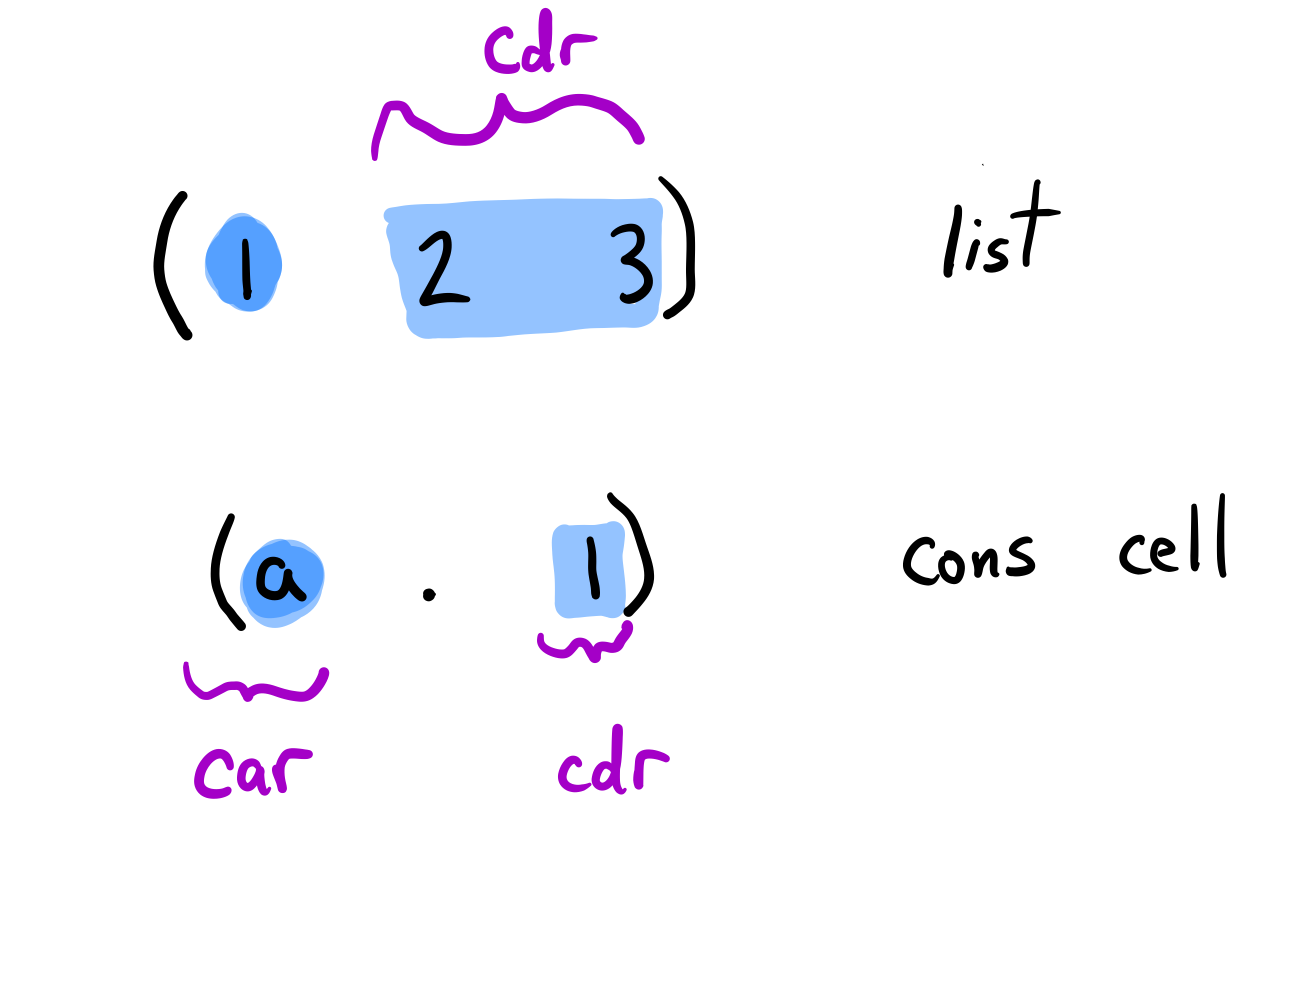 cdr
(1 2 3) list
(a . 1) cons cell
car cdr